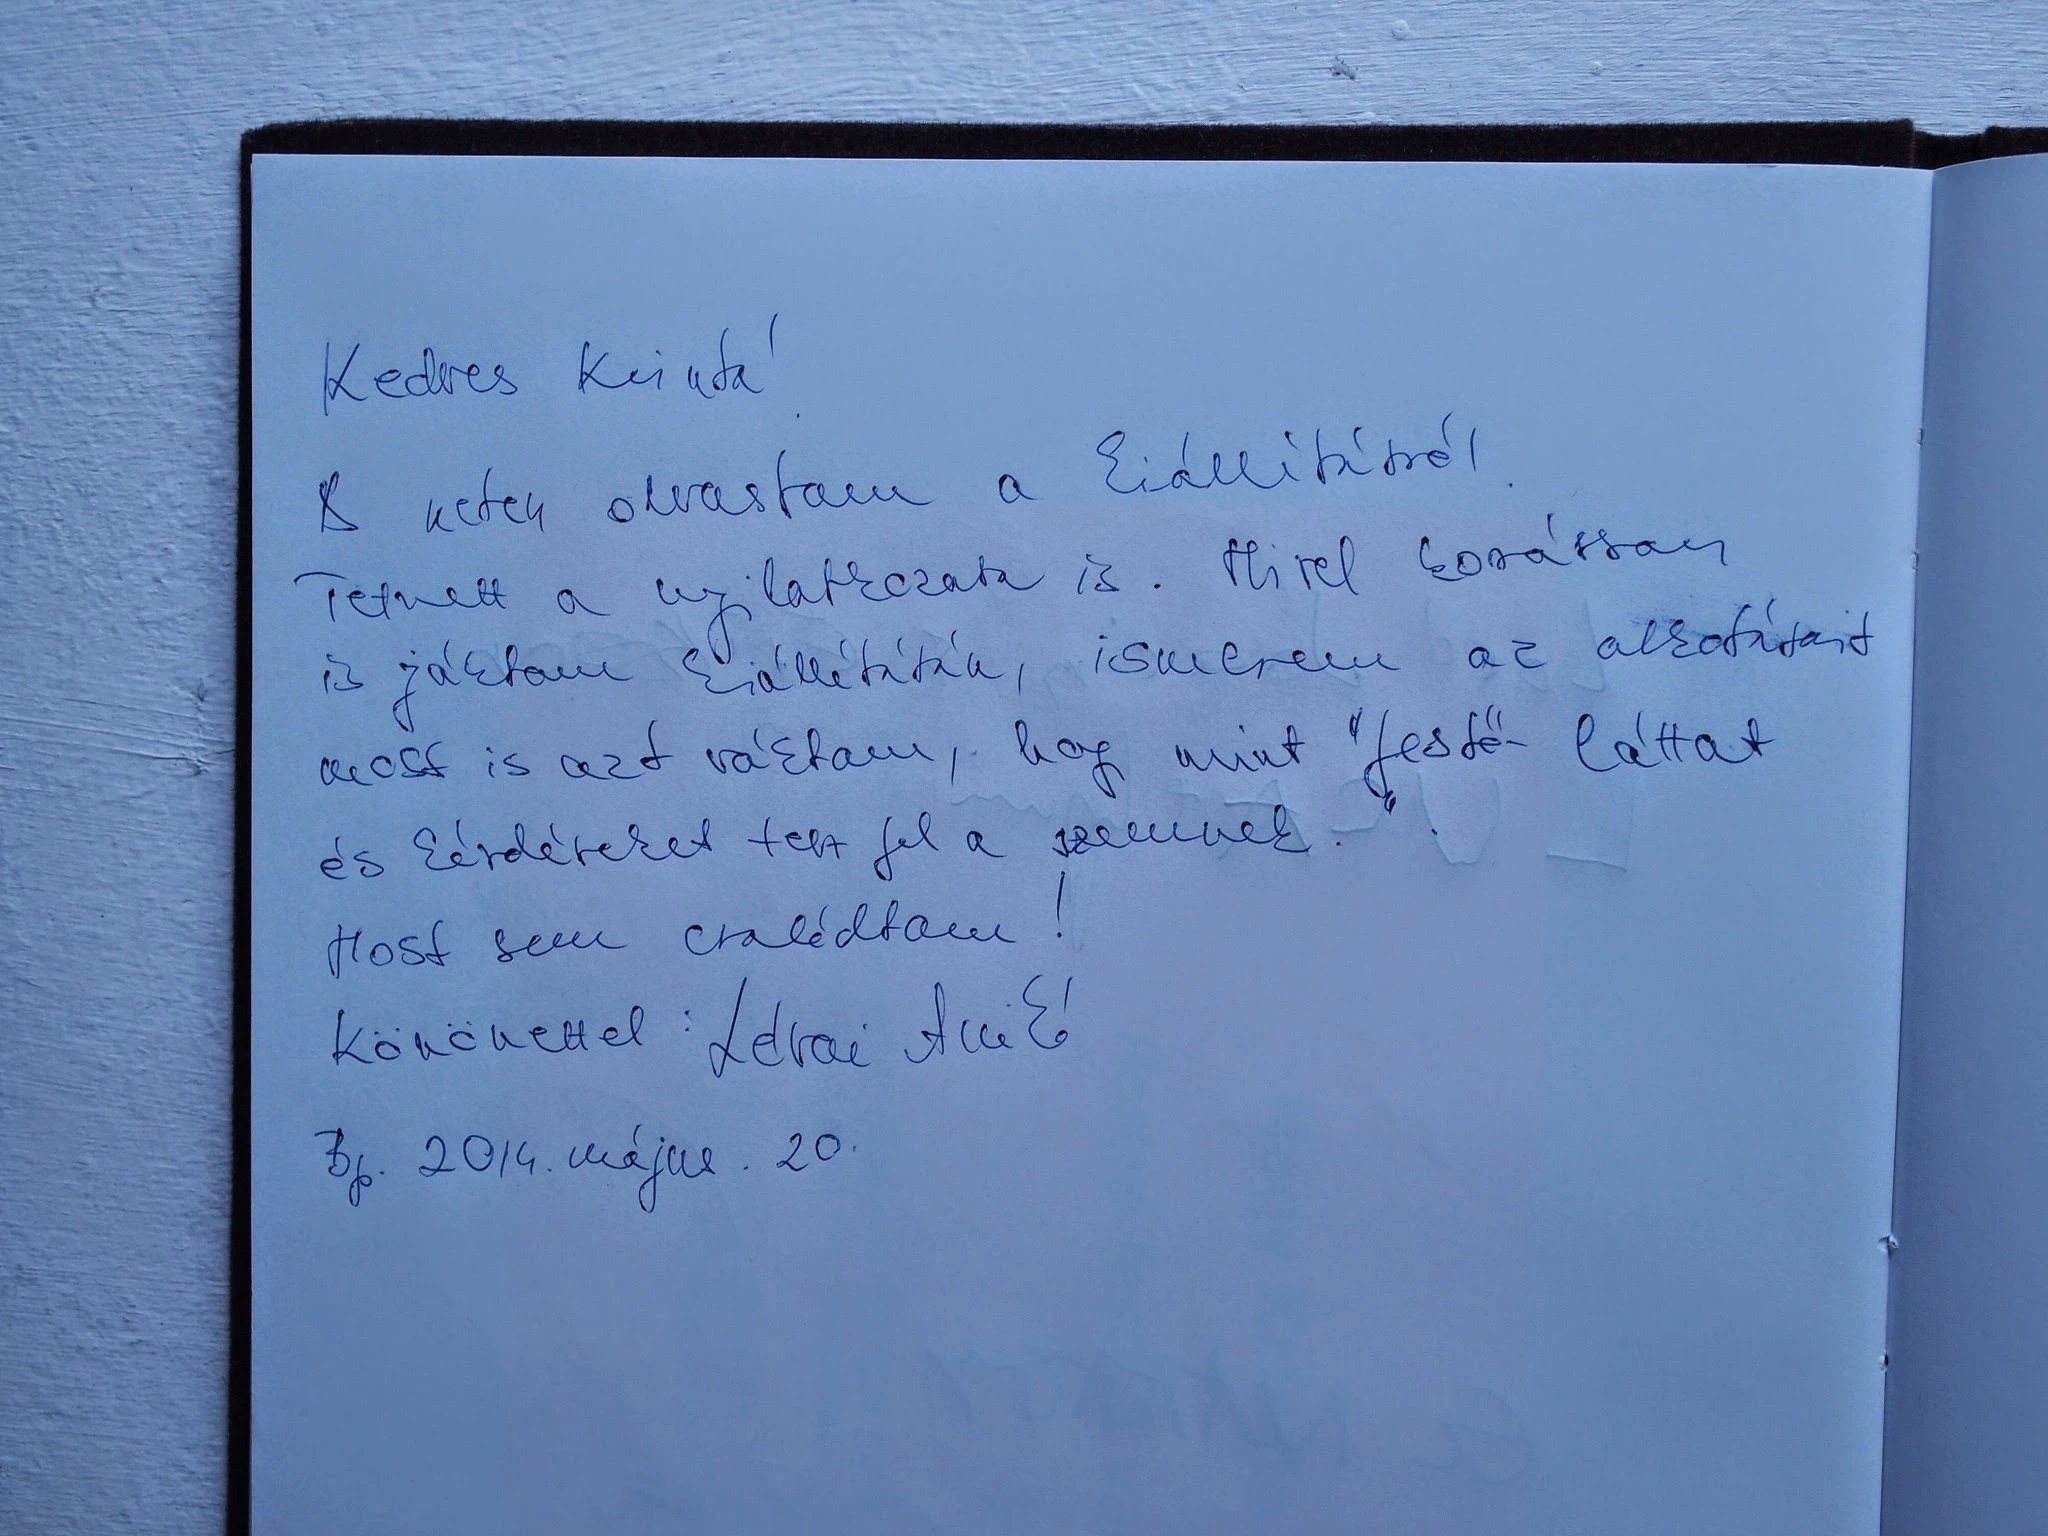 Kedves Kinta!
A neten olvastam a kiállításról.
Tetszett a nyilatkozata is. Mivel korábban
is jártam kiállításán, ismerem az alkotásait
most is azt vártam, hogy mint "festő láttat
és kérdéseket tesz fel a szemnek.".
Most sem csalódtam!
Köszönettel: Zdravi Anikó
Bp. 2014. május. 20.